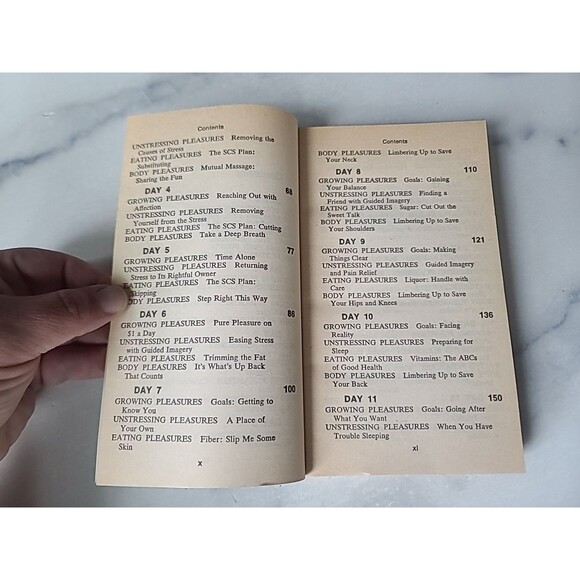 Contents
UNSTRESSING PLEASURES Removing the
Causes of Stress
EATING PLEASURES The SCS Plan:
Substituting
BODY PLEASURES Mutual Massage:
Sharing the Fun
DAY 4 68
GROWING PLEASURES Reaching Out with
Affection
UNSTRESSING PLEASURES Removing
Yourself from the Stress
EATING PLEASURES The SCS Plan: Cutting
BODY PLEASURES Take a Deep Breath
DAY 5 77
GROWING PLEASURES Time Alone
UNSTRESSING PLEASURES Returning
Stress to Its Rightful Owner
EATING PLEASURES The SCS Plan:
Skipping
BODY PLEASURES Step Right This Way
DAY 6 86
GROWING PLEASURES Pure Pleasure on
$1 a Day
UNSTRESSING PLEASURES Easing Stress
with Guided Imagery
EATING PLEASURES Trimming the Fat
BODY PLEASURES It's What's Up Back
That Counts
DAY 7 100
GROWING PLEASURES Goals: Getting to
Know You
UNSTRESSING PLEASURES A Place of
Your Own
EATING PLEASURES Fiber: Slip Me Some
Skin
x
Contents
BODY PLEASURES Limbering Up to Save
Your Neck
DAY 8 110
GROWING PLEASURES Goals: Gaining
Your Balance
UNSTRESSING PLEASURES Finding a
Friend with Guided Imagery
EATING PLEASURES Sugar: Cut Out the
Sweet Talk
BODY PLEASURES Limbering Up to Save
Your Shoulders
DAY 9 121
GROWING PLEASURES Goals: Making
Things Clear
UNSTRESSING PLEASURES Guided Imagery
and Pain Relief
EATING PLEASURES Liquor: Handle with
Care
BODY PLEASURES Limbering Up to Save
Your Hips and Knees
DAY 10 136
GROWING PLEASURES Goals: Facing
Reality
UNSTRESSING PLEASURES Preparing for
Sleep
EATING PLEASURES Vitamins: The ABCs
of Good Health
BODY PLEASURES Limbering Up to Save
Your Back
DAY 11 150
GROWING PLEASURES Goals: Going After
What You Want
UNSTRESSING PLEASURES When You Have
Trouble Sleeping
xi